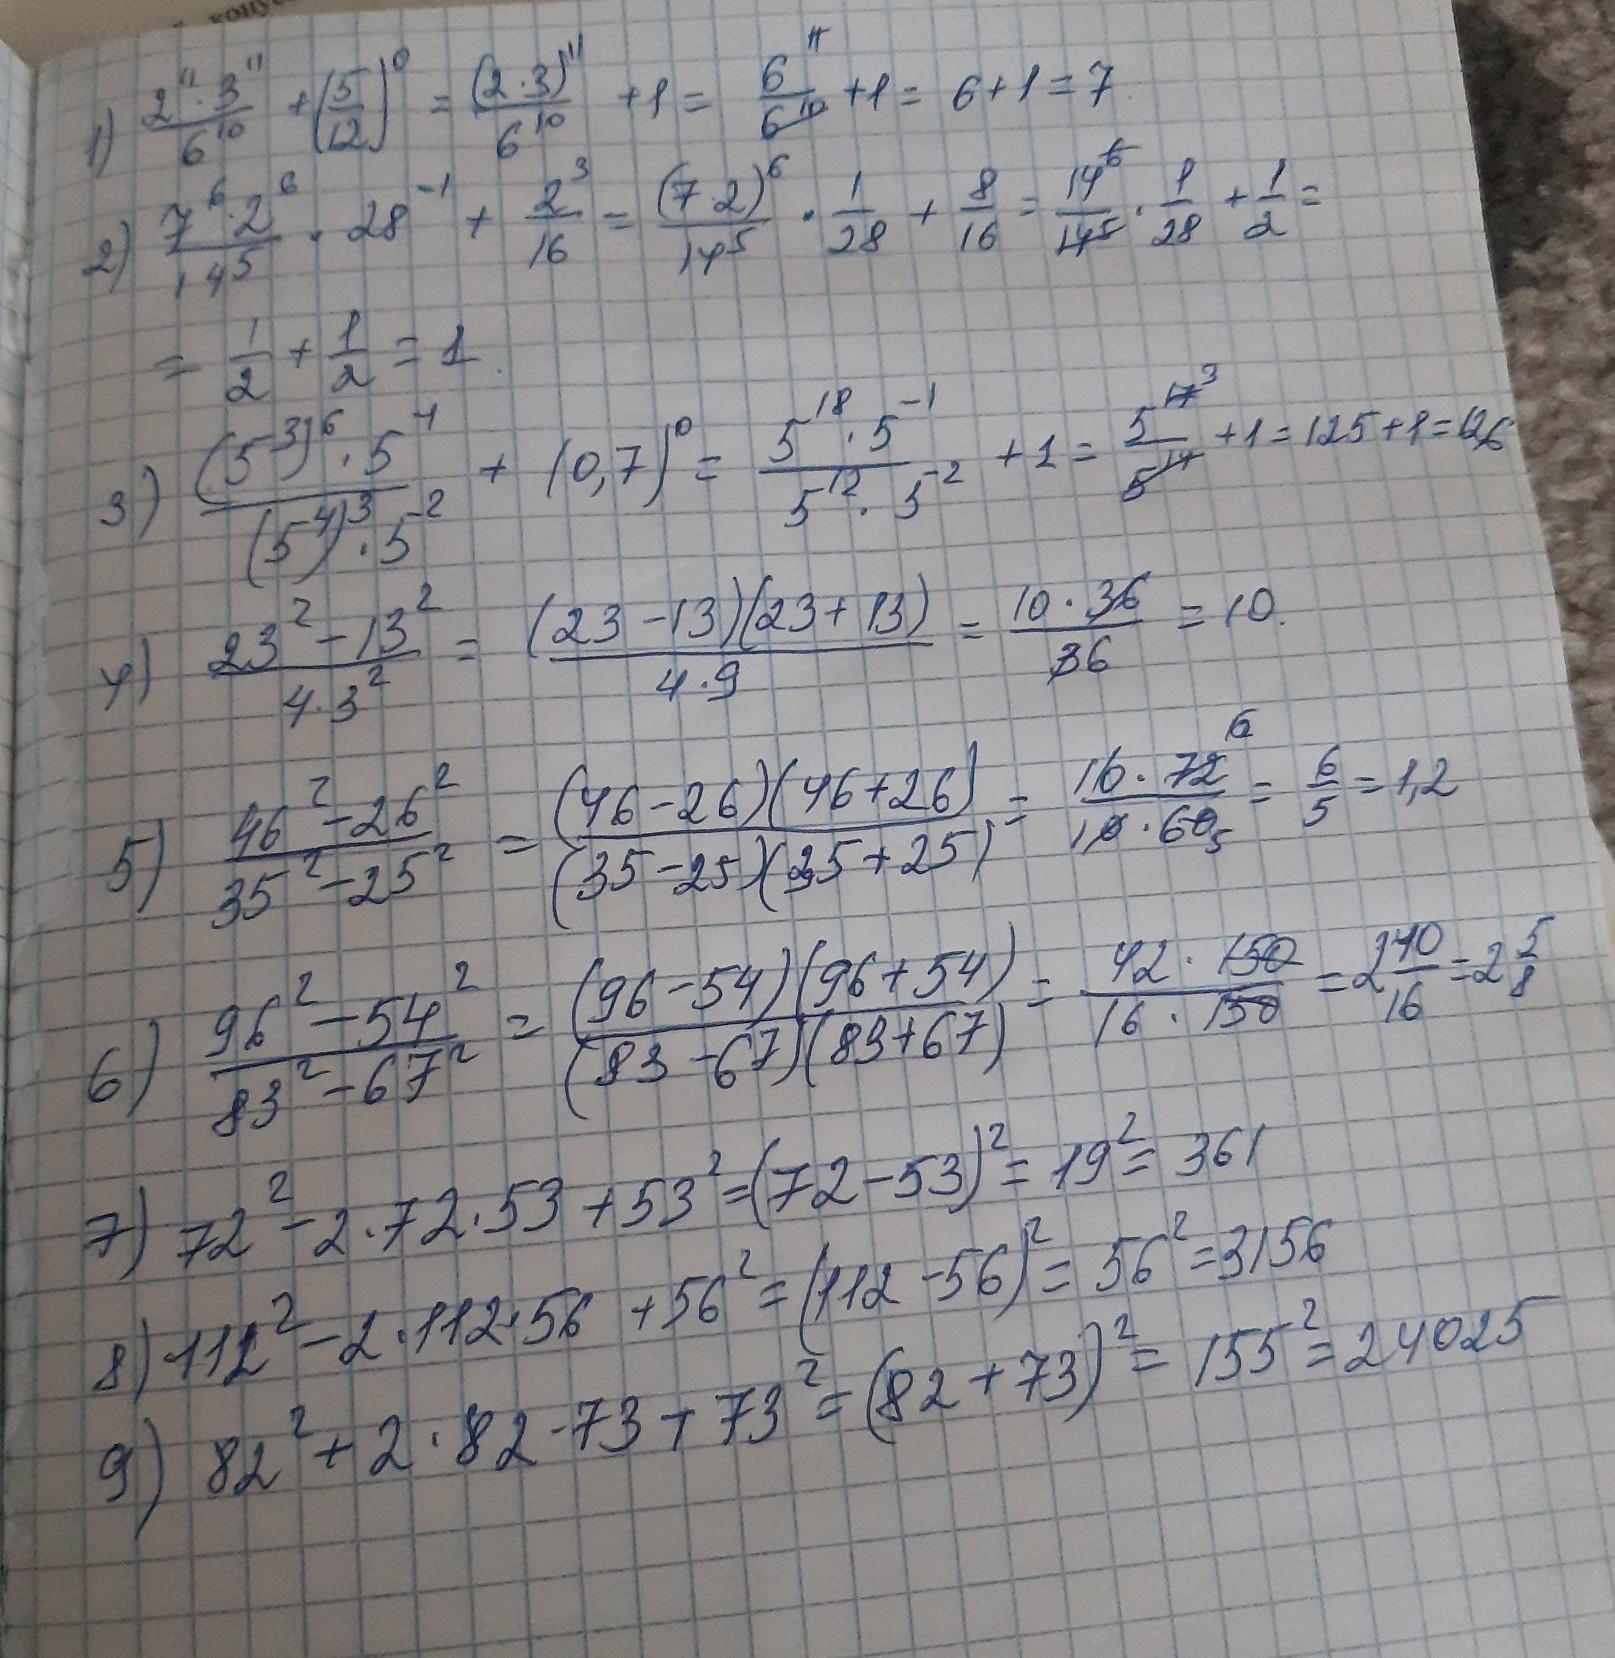 1) (2^11 · 3^11)/6^10 + (5/12)^0 = (2·3)^11/6^10 + 1 = 6^11/6^10 + 1 = 6+1 = 7
2) (7^6 · 2^6)/14^5 · 28^-1 + 2^3/16 = (7·2)^6/14^5 · 1/28 + 8/16 = 14^6/14^5 · 1/28 + 1/2 =
= 1/2 + 1/2 = 1.
3) ((5^3)^6 · 5^-1)/((5^4)^3 · 5^-2) + (0,7)^0 = (5^18 · 5^-1)/(5^12 · 5^-2) + 1 = 5^17 3/5^14 + 1 = 125+1 = 126
4) (23^2 - 13^2)/(4·3^2) = (23-13)(23+13)/(4·9) = (10·36)/36 = 10.
5) (46^2 - 26^2)/(35^2 - 25^2) = (46-26)(46+26)/(35-25)(35+25) = (10·72 6)/(10·60 5) = 6/5 = 1,2
6) (96^2 - 54^2)/(83^2 - 67^2) = (96-54)(96+54)/(83-67)(83+67) = (42·150)/(16·150) = 2 10/16 = 2 5/8
7) 72^2 - 2·72·53 + 53^2 = (72-53)^2 = 19^2 = 361
8) 112^2 - 2·112·56 + 56^2 = (112-56)^2 = 56^2 = 3156
9) 82^2 + 2·82·73 + 73^2 = (82+73)^2 = 155^2 = 24025